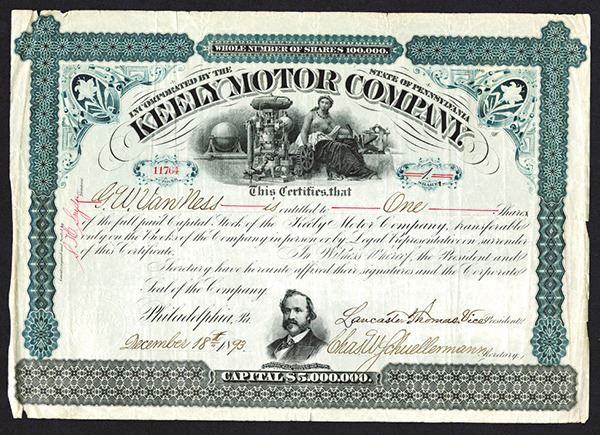 WHOLE NUMBER OF SHARES 100,000.
INCORPORATED BY THE STATE OF PENNSYLVANIA
KEELY MOTOR COMPANY.
11764
1
SHARE
This Certifies, that
G. W. Van Ness is entitled to One Shares
of the full paid Capital Stock of the Keely Motor Company, transferable
only on the Books of the Company in person or by Legal Representative on surrender
of this Certificate. In Witness Whereof, the President and
Secretary have hereunto affixed their signatures and the Corporate
Seal of the Company.
Philadelphia, Pa. Lancaster Thomas, Vice President
December 18th 1893 Chas. W. Schuellermann Secretary
CAPITAL $5,000,000.